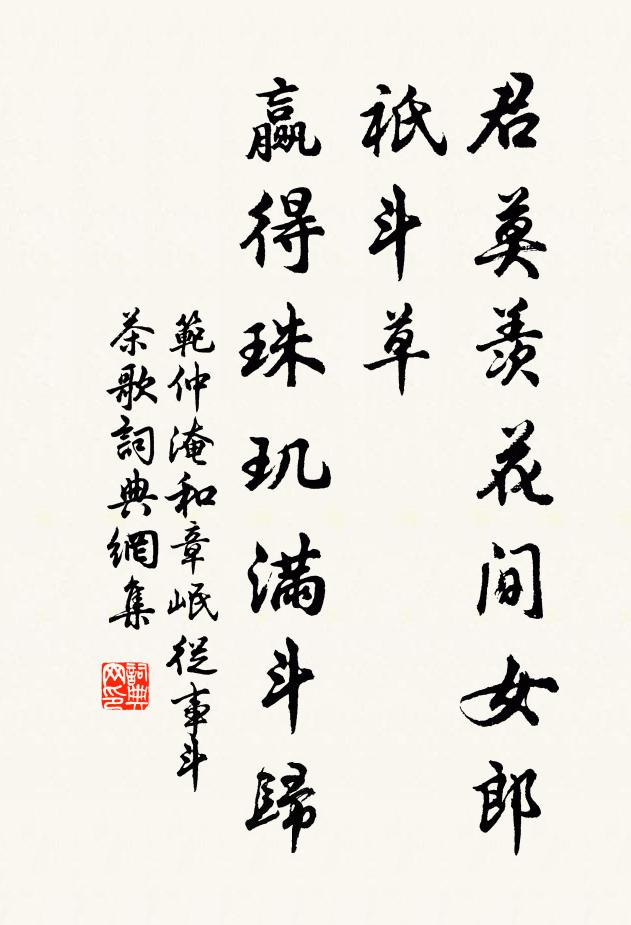 君莫羨花间女郎
祇斗草
贏得珠玑满斗歸
範仲淹和章岷從事斗
茶歌詞典網集
詞典
网印